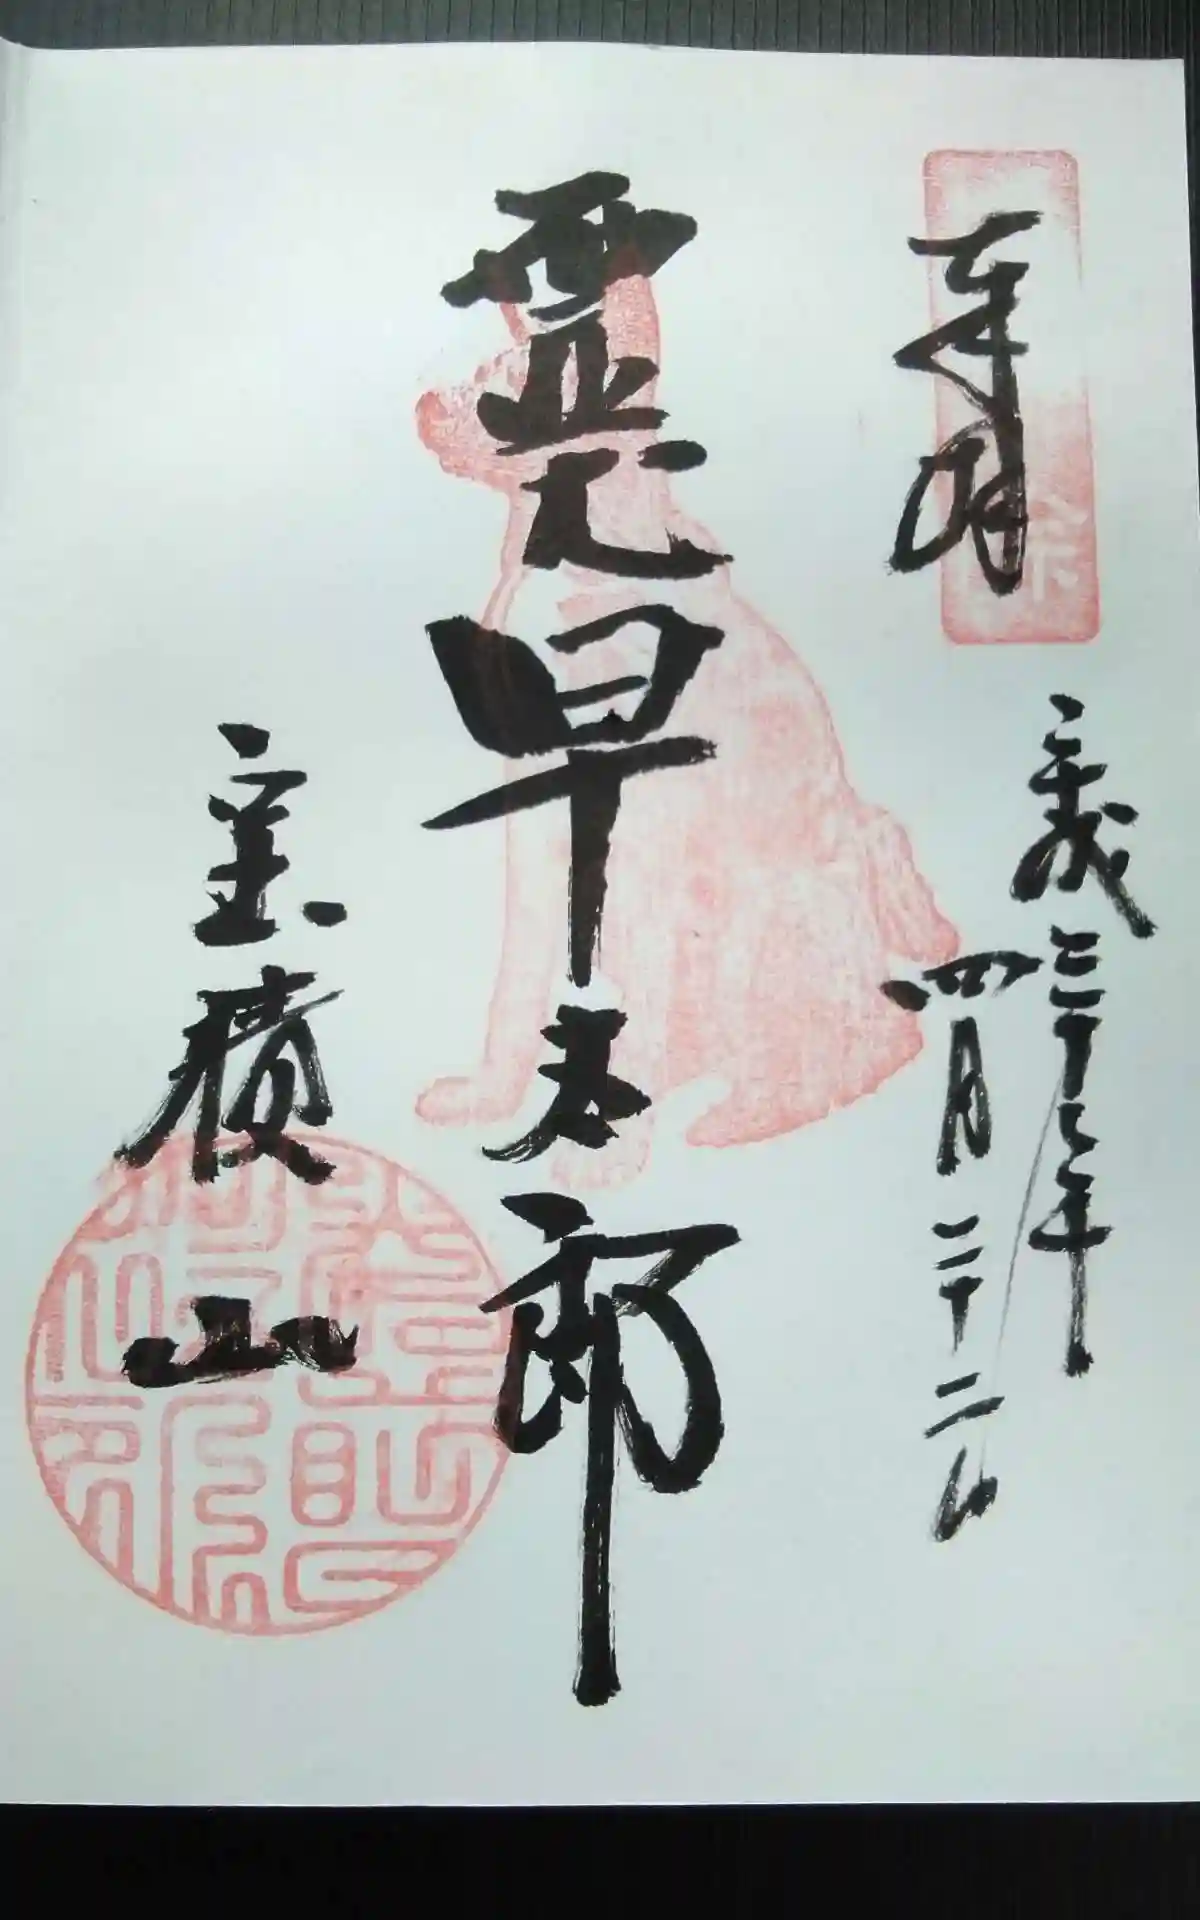 奉拝
平成三十一年
四月二十二日
霊犬早太郎
宝積山